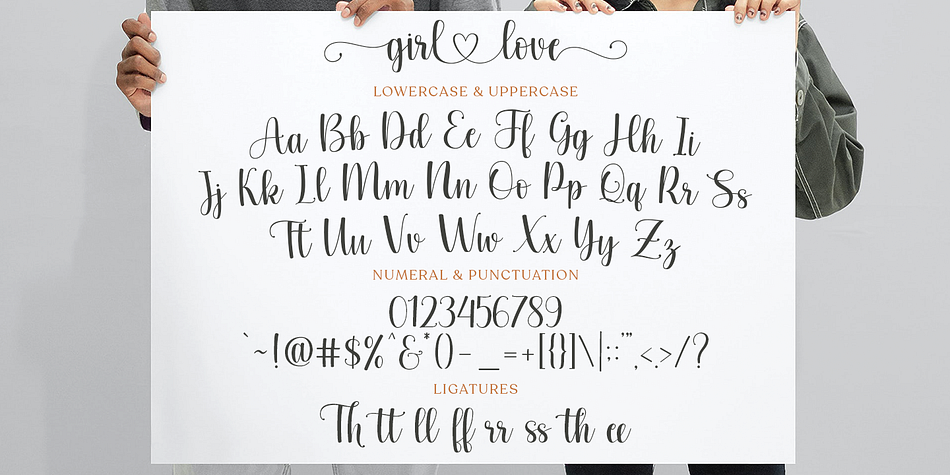 girl love
LOWERCASE & UPPERCASE
Aa Bb Dd Ee Ff Gg Hh Ii
Jj Kk Ll Mm Nn Oo Pp Qq Rr Ss
Tt Uu Vv Ww Xx Yy Zz
NUMERAL & PUNCTUATION
0123456789
`~!@#$%^&*()-_=+[{}]\|:;'",<.>/?
LIGATURES
Th tt ll ff rr ss th ee